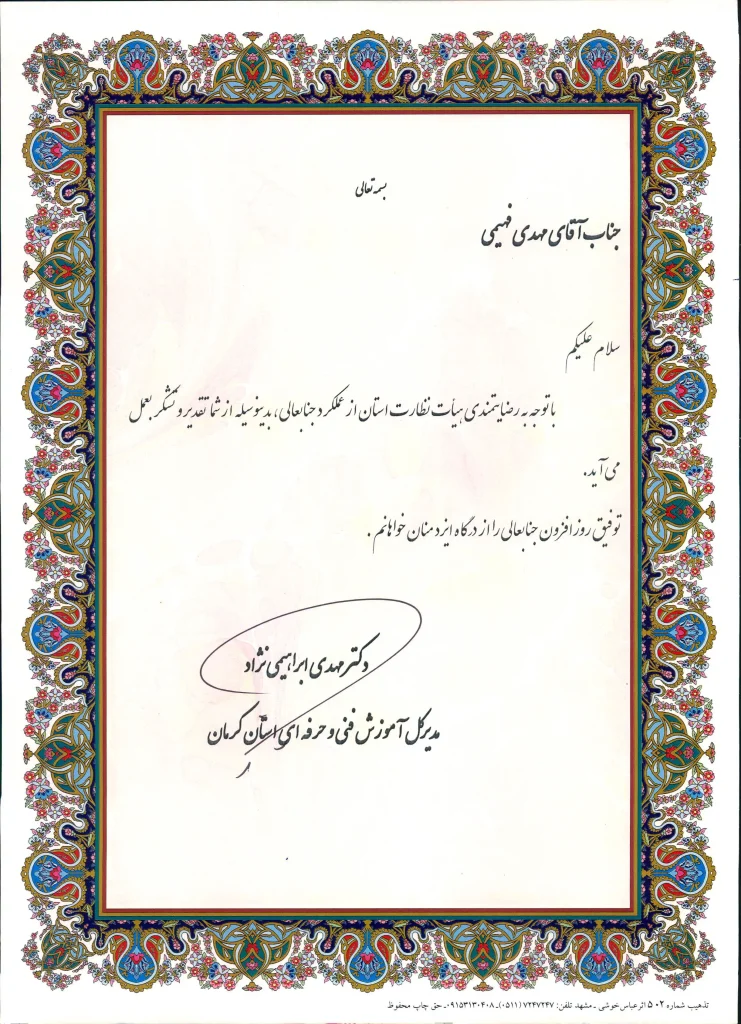 بسمه تعالی
جناب آقای مهدی فهیمی
سلام علیکم
با توجه به رضایتمندی هیأت نظارت استان از عملکرد جنابعالی، بدینوسیله از شما تقدیر و تشکر بعمل
می آید.
توفیق روزافزون جنابعالی را از درگاه ایزد منان خواهانم .
دکتر مهدی ابراهیمی نژاد
مدیرکل آموزش فنی و حرفه ای استان کرمان
تذهیب شماره ۵۰۲ اثر عباس خوشی ـ مشهد تلفن: ۷۲۴۷۲۴۷ (۰۵۱۱)ـ ۰۹۱۵۳۱۳۰۴۰۸ـ حق چاپ محفوظ